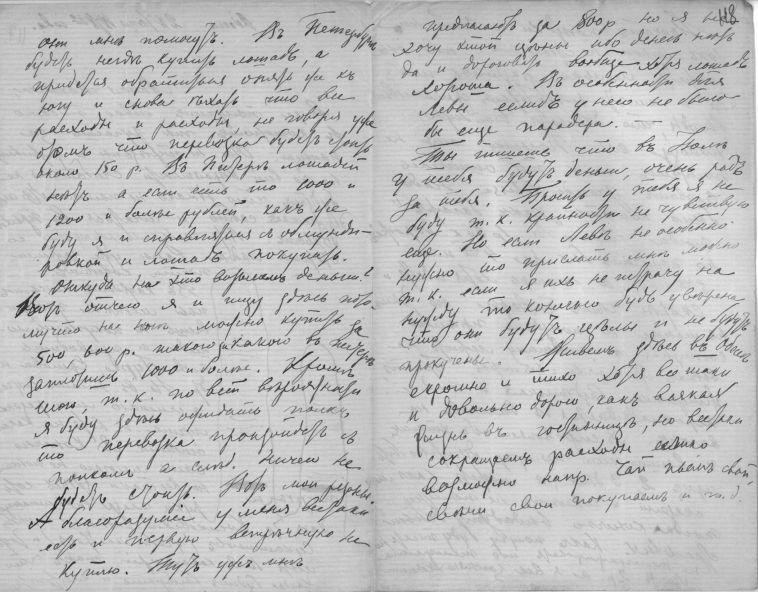 они мнѣ помогутъ. Въ Петербургѣ
будетъ негдѣ купить лошадь, а
придется обратиться опять же къ
югу и снова ѣхать что все
расходы и расходы не говоря уже
о томъ что перевозка будетъ стоить
около 150 р. Въ Питерѣ лошадей
нетъ а если есть то 1000 и
1200 и болѣе рублей, какъ же
буду я и справляться съ обмунди-
ровкой и лошадь покупать.
Откуда на это возьмемъ деньги?
Вотъ отчего я и ищу здѣсь пото-
му что на югѣ можно купить за
500, 600 р. такого за какого въ Питерѣ
заплотишь 1000 и болѣе. Кромѣ
того, т. к. по всѣй вѣроятности
я буду здѣсь ожидать полка,
то перевозка произойдетъ съ
полкомъ а слѣд. ничего не
будетъ стоить. Вотъ мои резоны.
А благоразуміе у меня всетаки
есть и первую встрѣчную не
куплю. Тутъ уже мнѣ
118
предлагаютъ за 800 р но я не
хочу этой цѣны ибо денегъ нѣтъ
да и дорого вообще хотя лошадь
хороша. Въ особенности для
Левы еслибъ у него не было
бы еще парадера. —
Ты пишешь что въ Іюлѣ
у тебя будутъ деньги, очень радъ
за тебя. Просить у тебя я не
буду т. к. крайности не чувствую
еще. Но если Левѣ не особенно
нужно то прислать мнѣ можно
т. к. если я ихъ не истрачу на
нужду то конечно будь увѣрена
что они будутъ цѣлы и не будутъ
прокучены. Живемъ здѣсь въ Одессѣ
скромно и тихо хотя все таки
и довольно дорого, какъ всякая
жизнь въ гостинницѣ, но всетаки
сокращаемъ расходы сколько
возможно напр. чай пьемъ свой,
свѣчи свои покупаемъ и т. д.